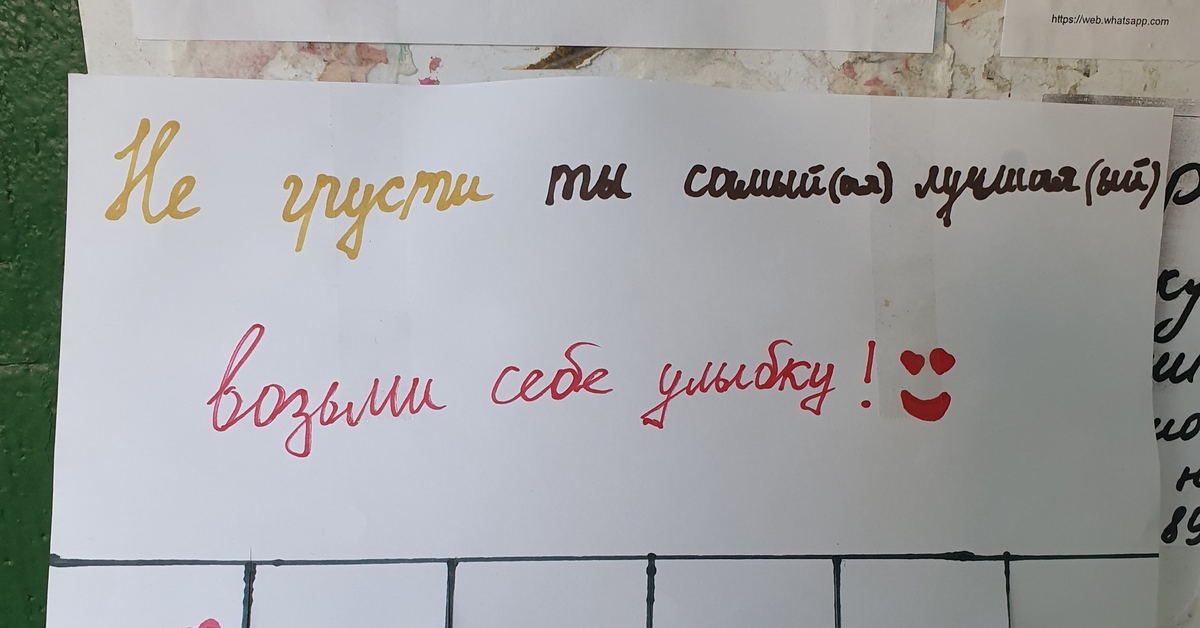 https://web.whatsapp.com
Не грусти ты самый(ая) лучшая(ый)
возьми себе улыбку!
89